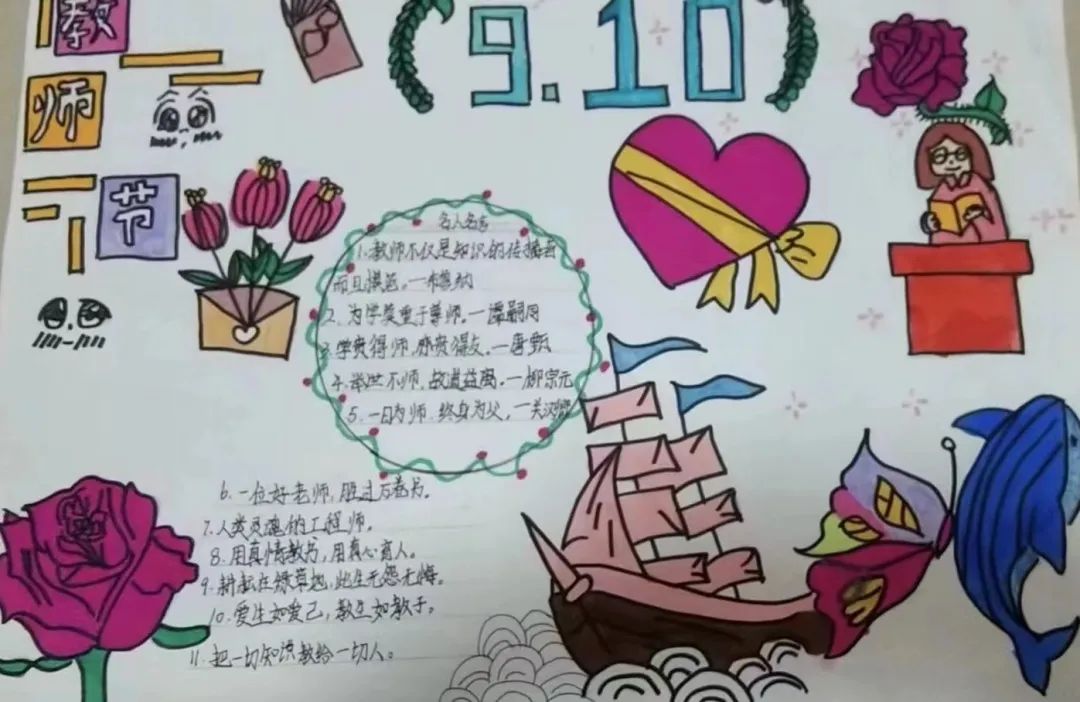 教
师
节
9.10
名人名言
1.教师不仅是知识的传播者
而且模范。—布鲁纳
2、为学莫重于尊师。—谭嗣同
3.学贵得师,亦贵得友。—唐甄
4.举世不师,故道益离。—柳宗元
5.一日为师.终身为父,—关汉卿
6.一位好老师,胜过万卷书。
7.人类灵魂的工程师。
8.用真情教书,用真心育人。
9.耕耘在绿草地,此生无怨无悔。
10.爱生如爱己,教生如教子。
11.把一切知识教给一切人。